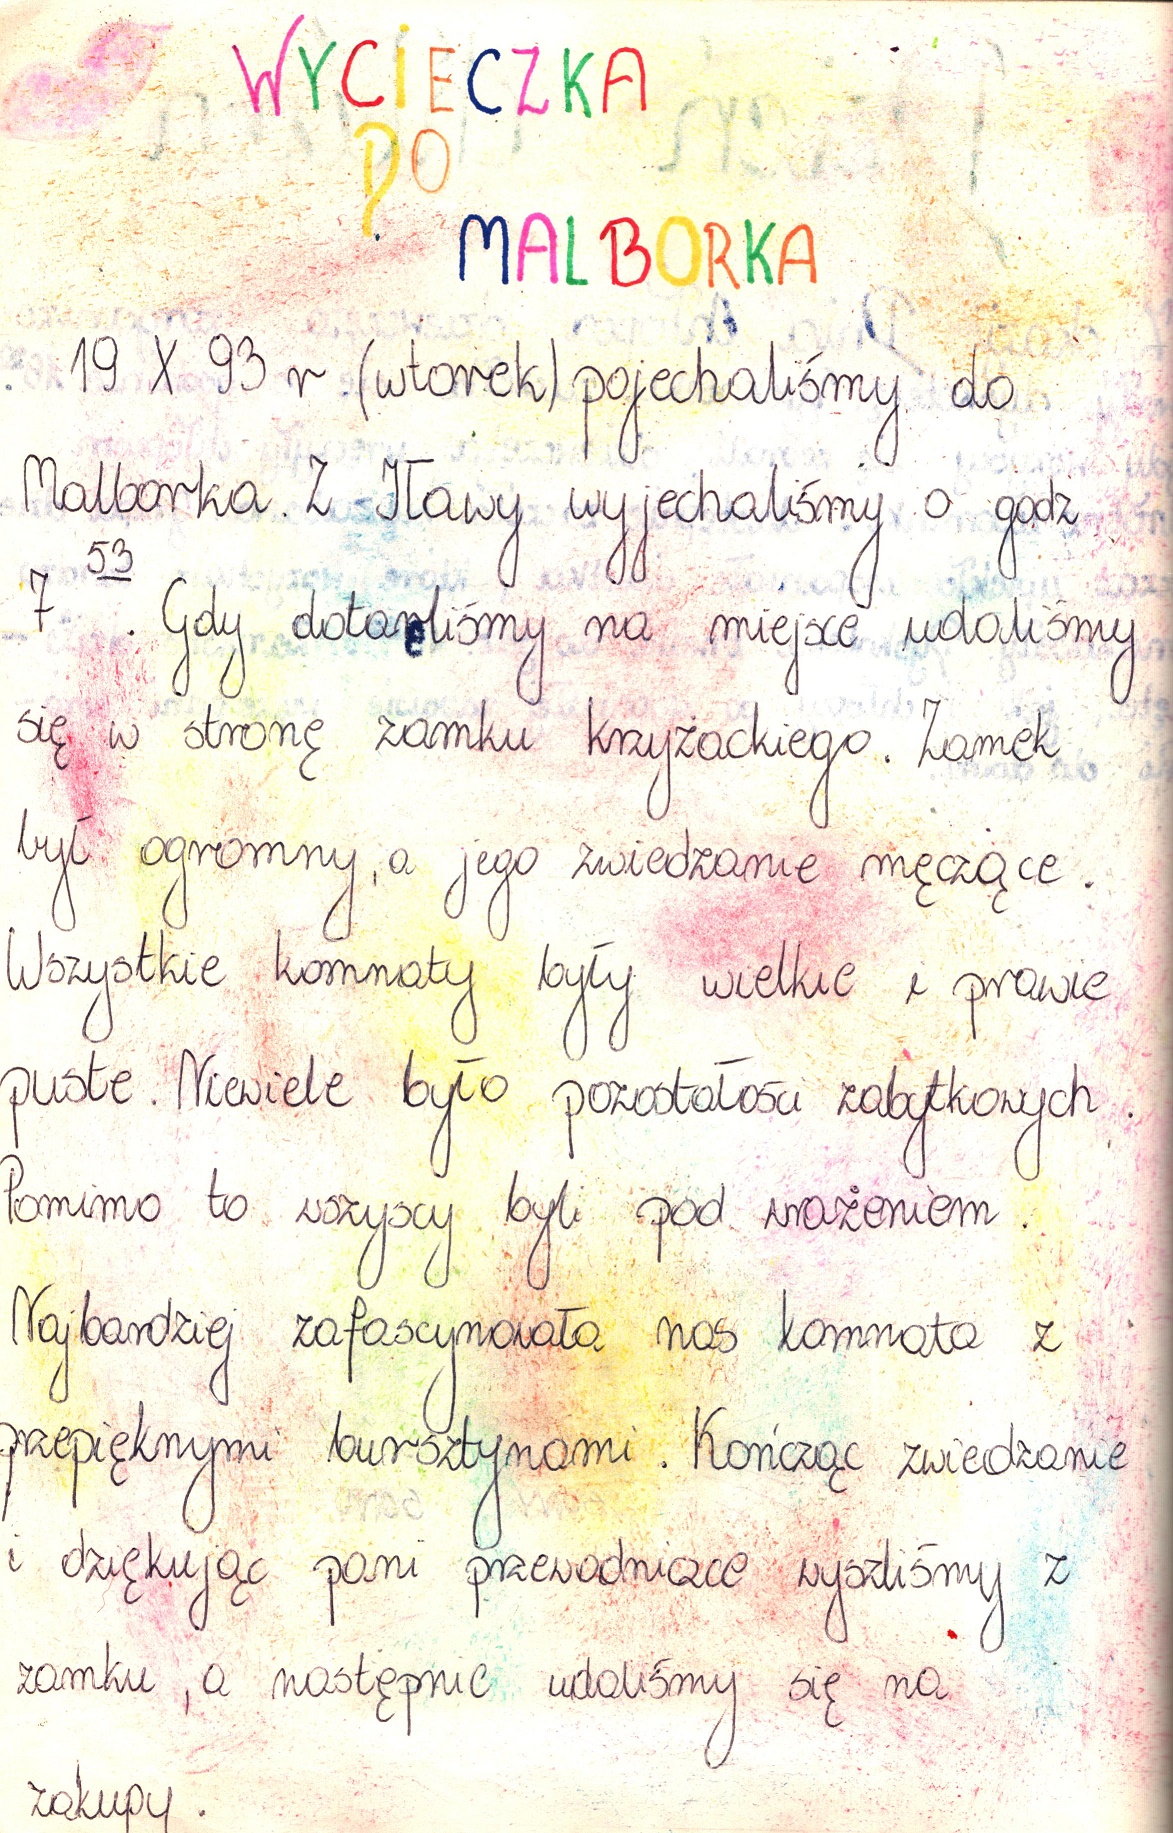 WYCIECZKA
DO
MALBORKA
19 X 93 r (wtorek) pojechaliśmy do
Malborka. Z Iławy wyjechaliśmy o godz
7 53. Gdy dotarliśmy na miejsce udaliśmy
się w stronę zamku krzyżackiego. Zamek
był ogromny, a jego zwiedzanie męczące.
Wszystkie komnaty były wielkie i prawie
puste. Niewiele było pozostałości zabytkowych.
Pomimo to wszyscy byli pod wrażeniem.
Najbardziej zafascynowała nas komnata z
przepięknymi bursztynami. Kończąc zwiedzanie
i dziękując pani przewodniczce wyszliśmy z
zamku, a następnie udaliśmy się na
zakupy.